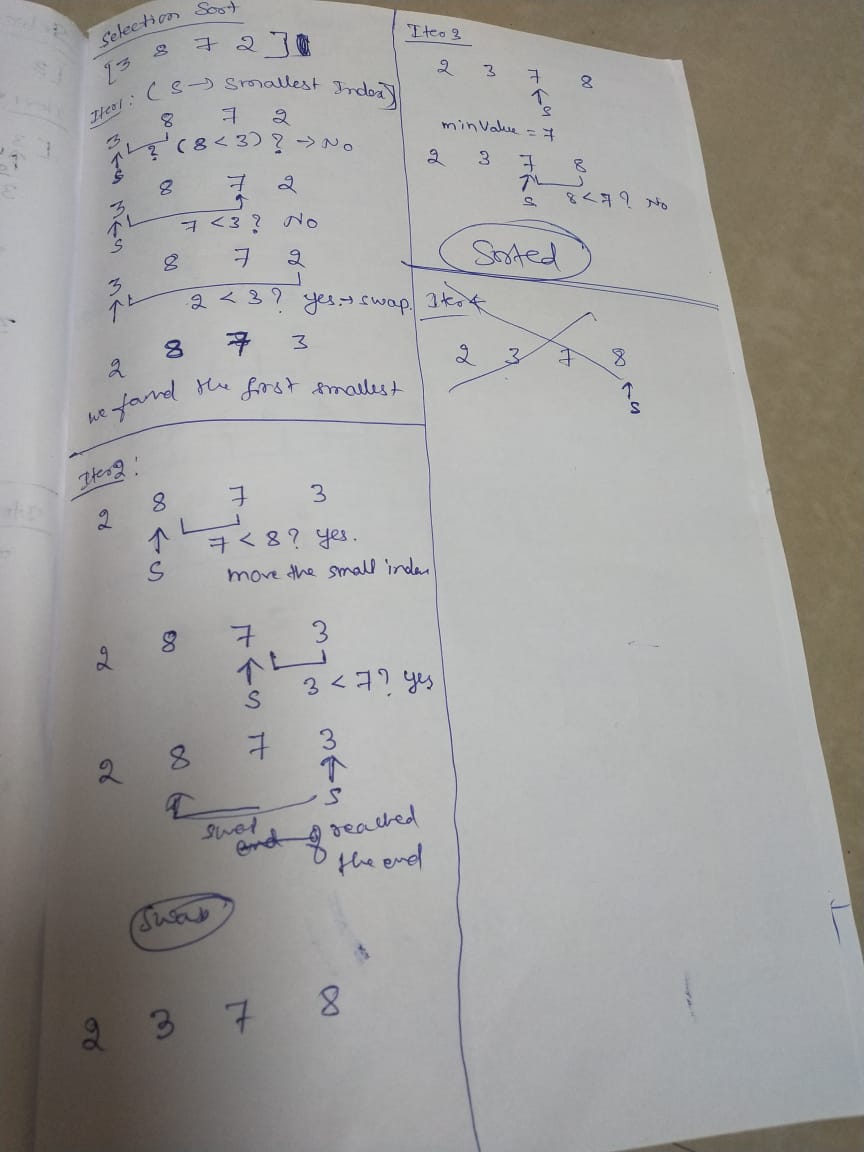 Selection Sort
[3 8 7 2]
Iter1: (S → Smallest Index)
3 8 7 2
? (8 < 3) ? → No
S
3 8 7 2
7 < 3 ? No
S
3 8 7 2
2 < 3 ? yes → swap.
2 8 7 3
we found the first smallest
Iter2:
2 8 7 3
7 < 8 ? yes.
S move the small index
2 8 7 3
3 < 7 ? yes
S
2 8 7 3
S
swap reached
the end
Swap
2 3 7 8
Iter 3
2 3 7 8
S
minValue = 7
2 3 7 8
S 8 < 7 ? No
Sorted
Iter 4
2 3 7 8
S